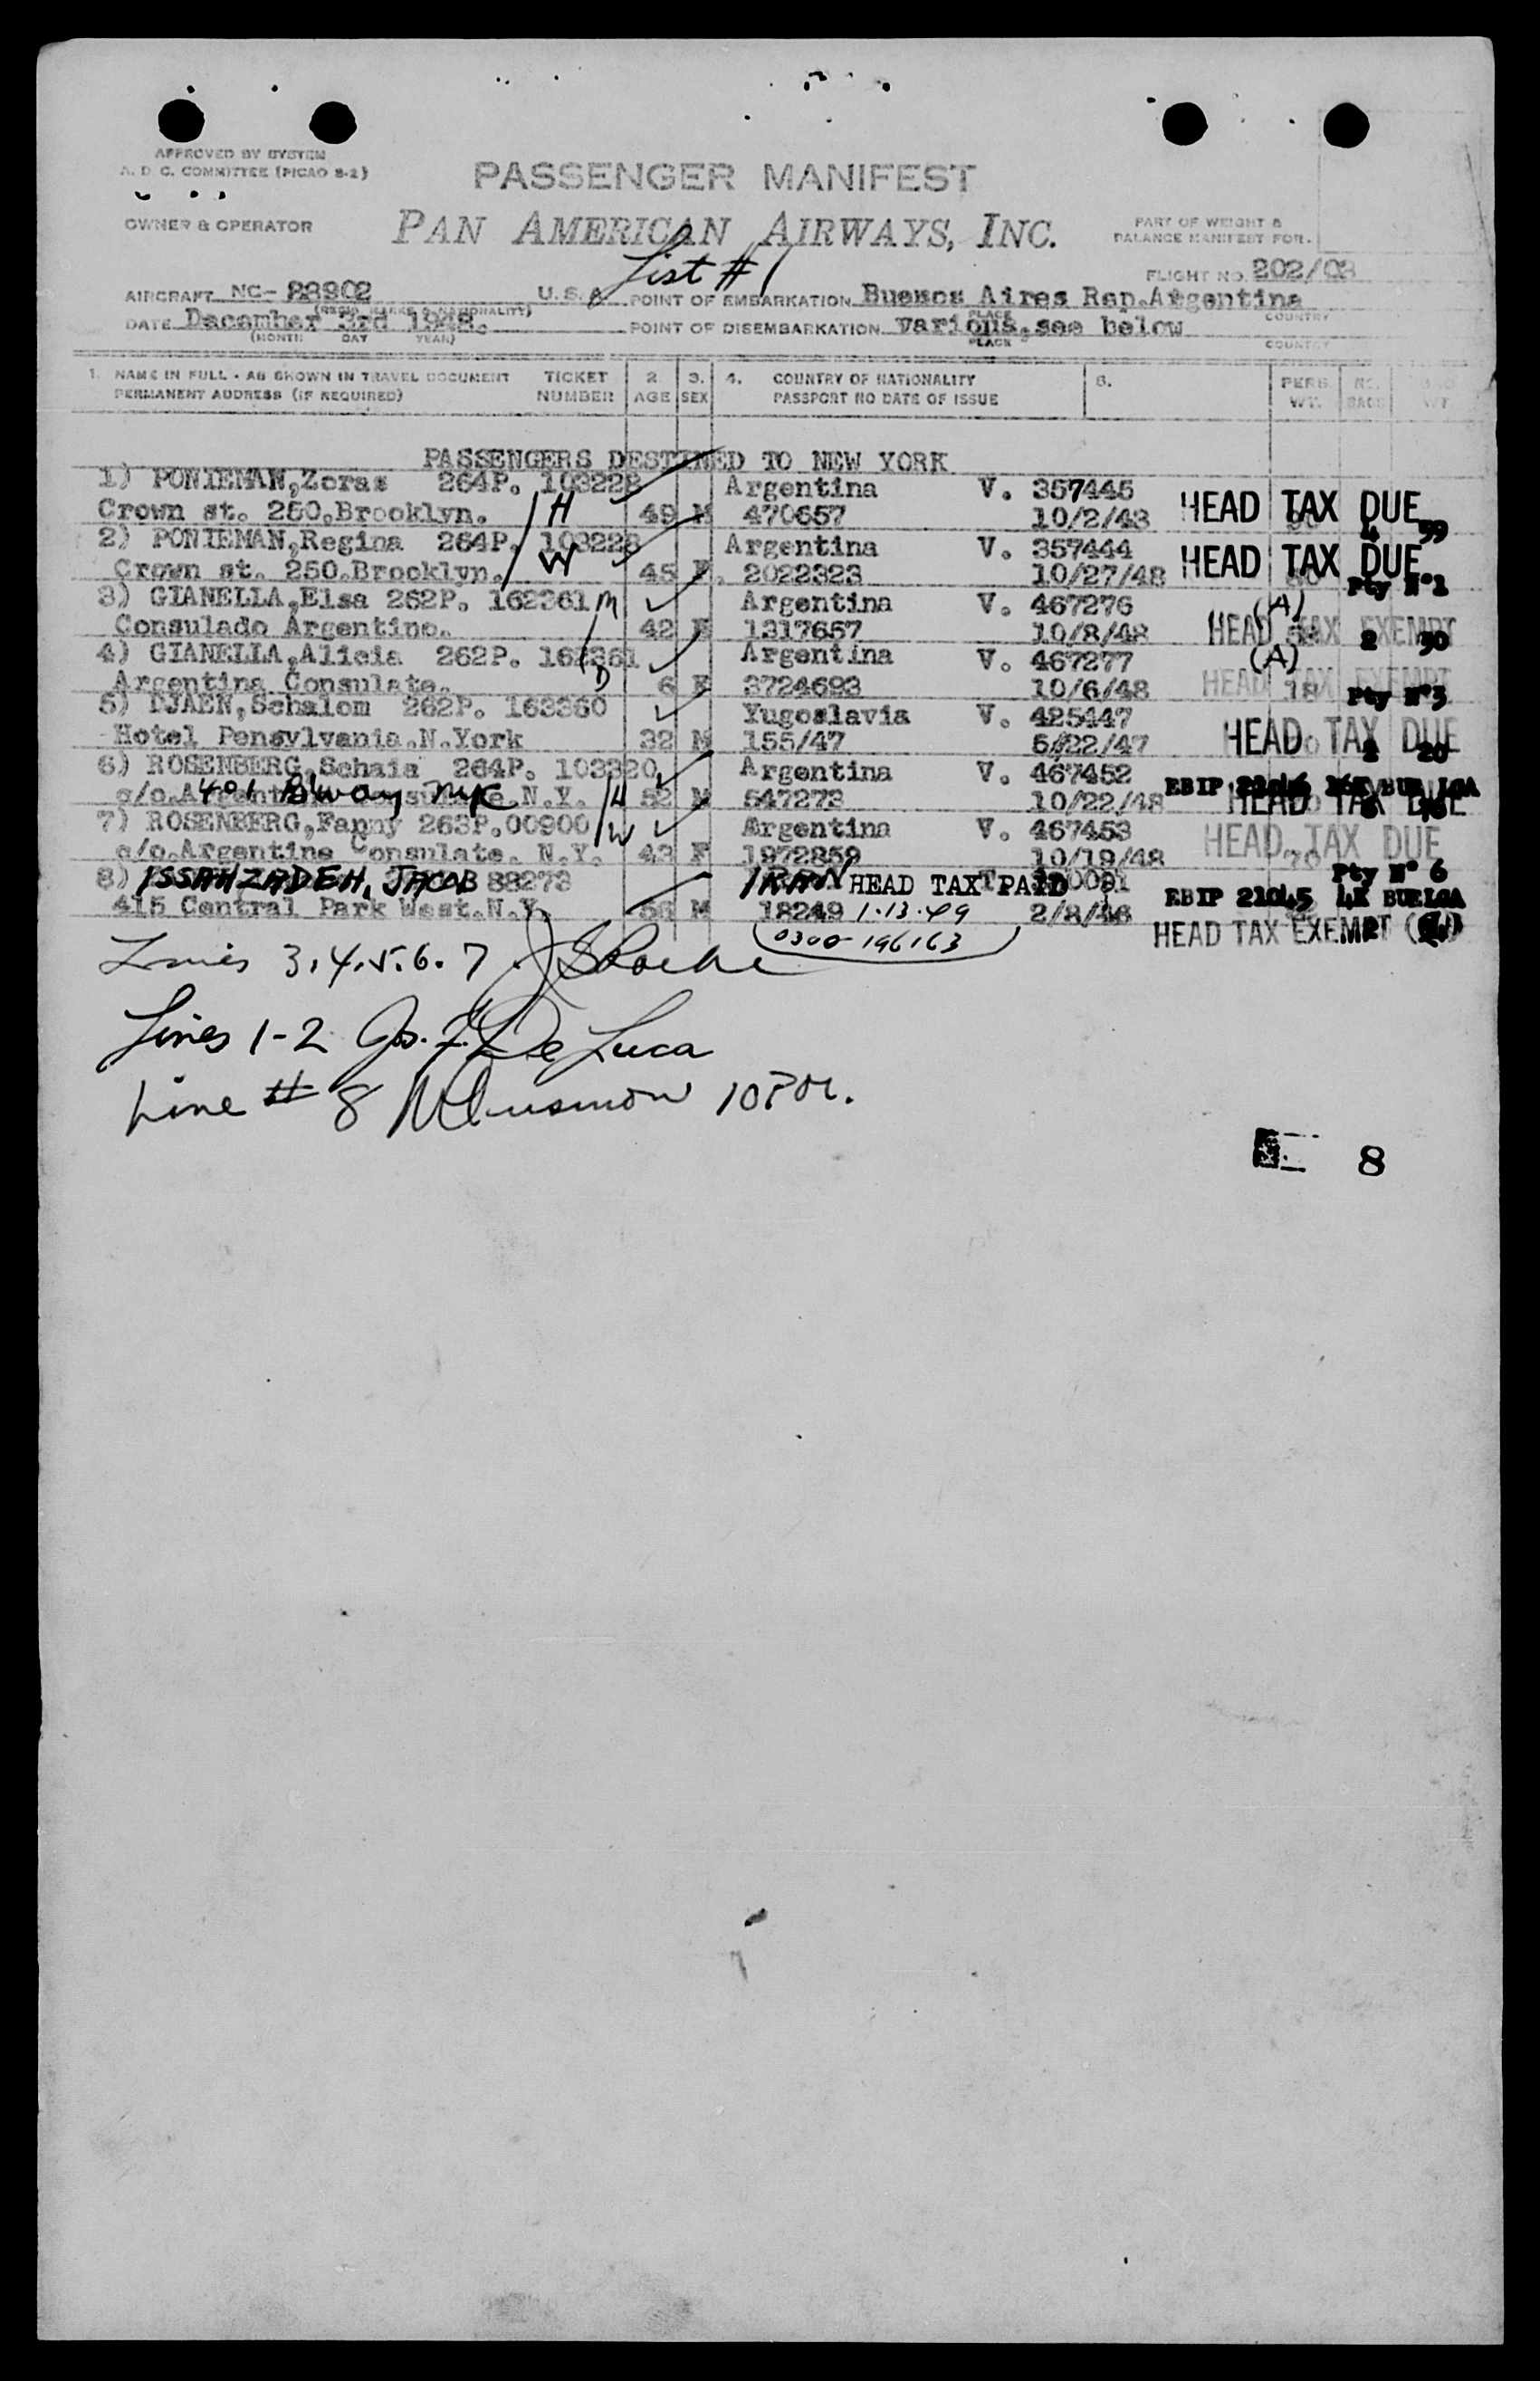 APPROVED BY SYSTEM
A. D. C. COMMITTEE (PICAO S-2)
PASSENGER MANIFEST
OWNER & OPERATOR
PAN AMERICAN AIRWAYS, INC.
PART OF WEIGHT &
BALANCE MANIFEST FOR.
List # 1
FLIGHT NO. 202/03
AIRCRAFT NC- 88902 U.S.A. POINT OF EMBARKATION Buenos Aires Rep. Argentina
(REGIS. MARKS & NATIONALITY) PLACE COUNTRY
DATE December 3rd 1948. POINT OF DISEMBARKATION various, see below
(MONTH DAY YEAR) PLACE COUNTRY
1. NAME IN FULL - AS SHOWN IN TRAVEL DOCUMENT TICKET 2. 3. 4. COUNTRY OF NATIONALITY 5. PERS. NO.
PERMANENT ADDRESS (IF REQUIRED) NUMBER AGE SEX PASSPORT NO DATE OF ISSUE WT. BAGS WT
PASSENGERS DESTINED TO NEW YORK
1) PONIEMAN, Zoras 264P. 103228 Argentina V. 357445
Crown st. 250. Brooklyn. H 49 M 470657 10/2/48 HEAD TAX DUE 4 99
2) PONIEMAN, Regina 264P. 103228 Argentina V. 357444
Crown st. 250. Brooklyn. W 45 F. 2022323 10/27/48 HEAD TAX DUE Pty Nº1
3) GIANELLA, Elsa 262P. 162361 M Argentina V. 467276 (A)
Consulado Argentino. 42 F 1317657 10/8/48 HEAD TAX EXEMPT 2 30
4) GIANELLA, Alicia 262P. 162361 Argentina V. 467277 (A)
Argentina Consulate. D 6 F 3724693 10/6/48 HEAD TAX EXEMPT 18 Pty Nº3
5) DJAEN, Schalom 262P. 162360 Yugoslavia V. 425447
Hotel Pensylvania. N.York 32 M 155/47 5/22/47 HEAD TAX DUE 1 20
6) ROSENBERG, Schaia 264P. 103320 Argentina V. 467452
401 Bway NYC N.Y. H 52 M 547273 10/22/48 EBIP HEAD TAX DUE
7) ROSENBERG, Fanny 263P. 00900 W Argentina V. 467453
c/o. Argentine Consulate. N.Y. 43 F 1972859 10/19/48 HEAD TAX DUE 70 Pty Nº 6
8) ISSAHZADEH, JACOB 88273 IRAN HEAD TAX PAID EBIP 21045 4K BUELGA
415 Central Park West. N.Y. M 18249 1-13-49 2/8/46 HEAD TAX EXEMPT
0300-196163
Lines 3.4.5.6.7
Lines 1-2 De Luca
Line # 8
8